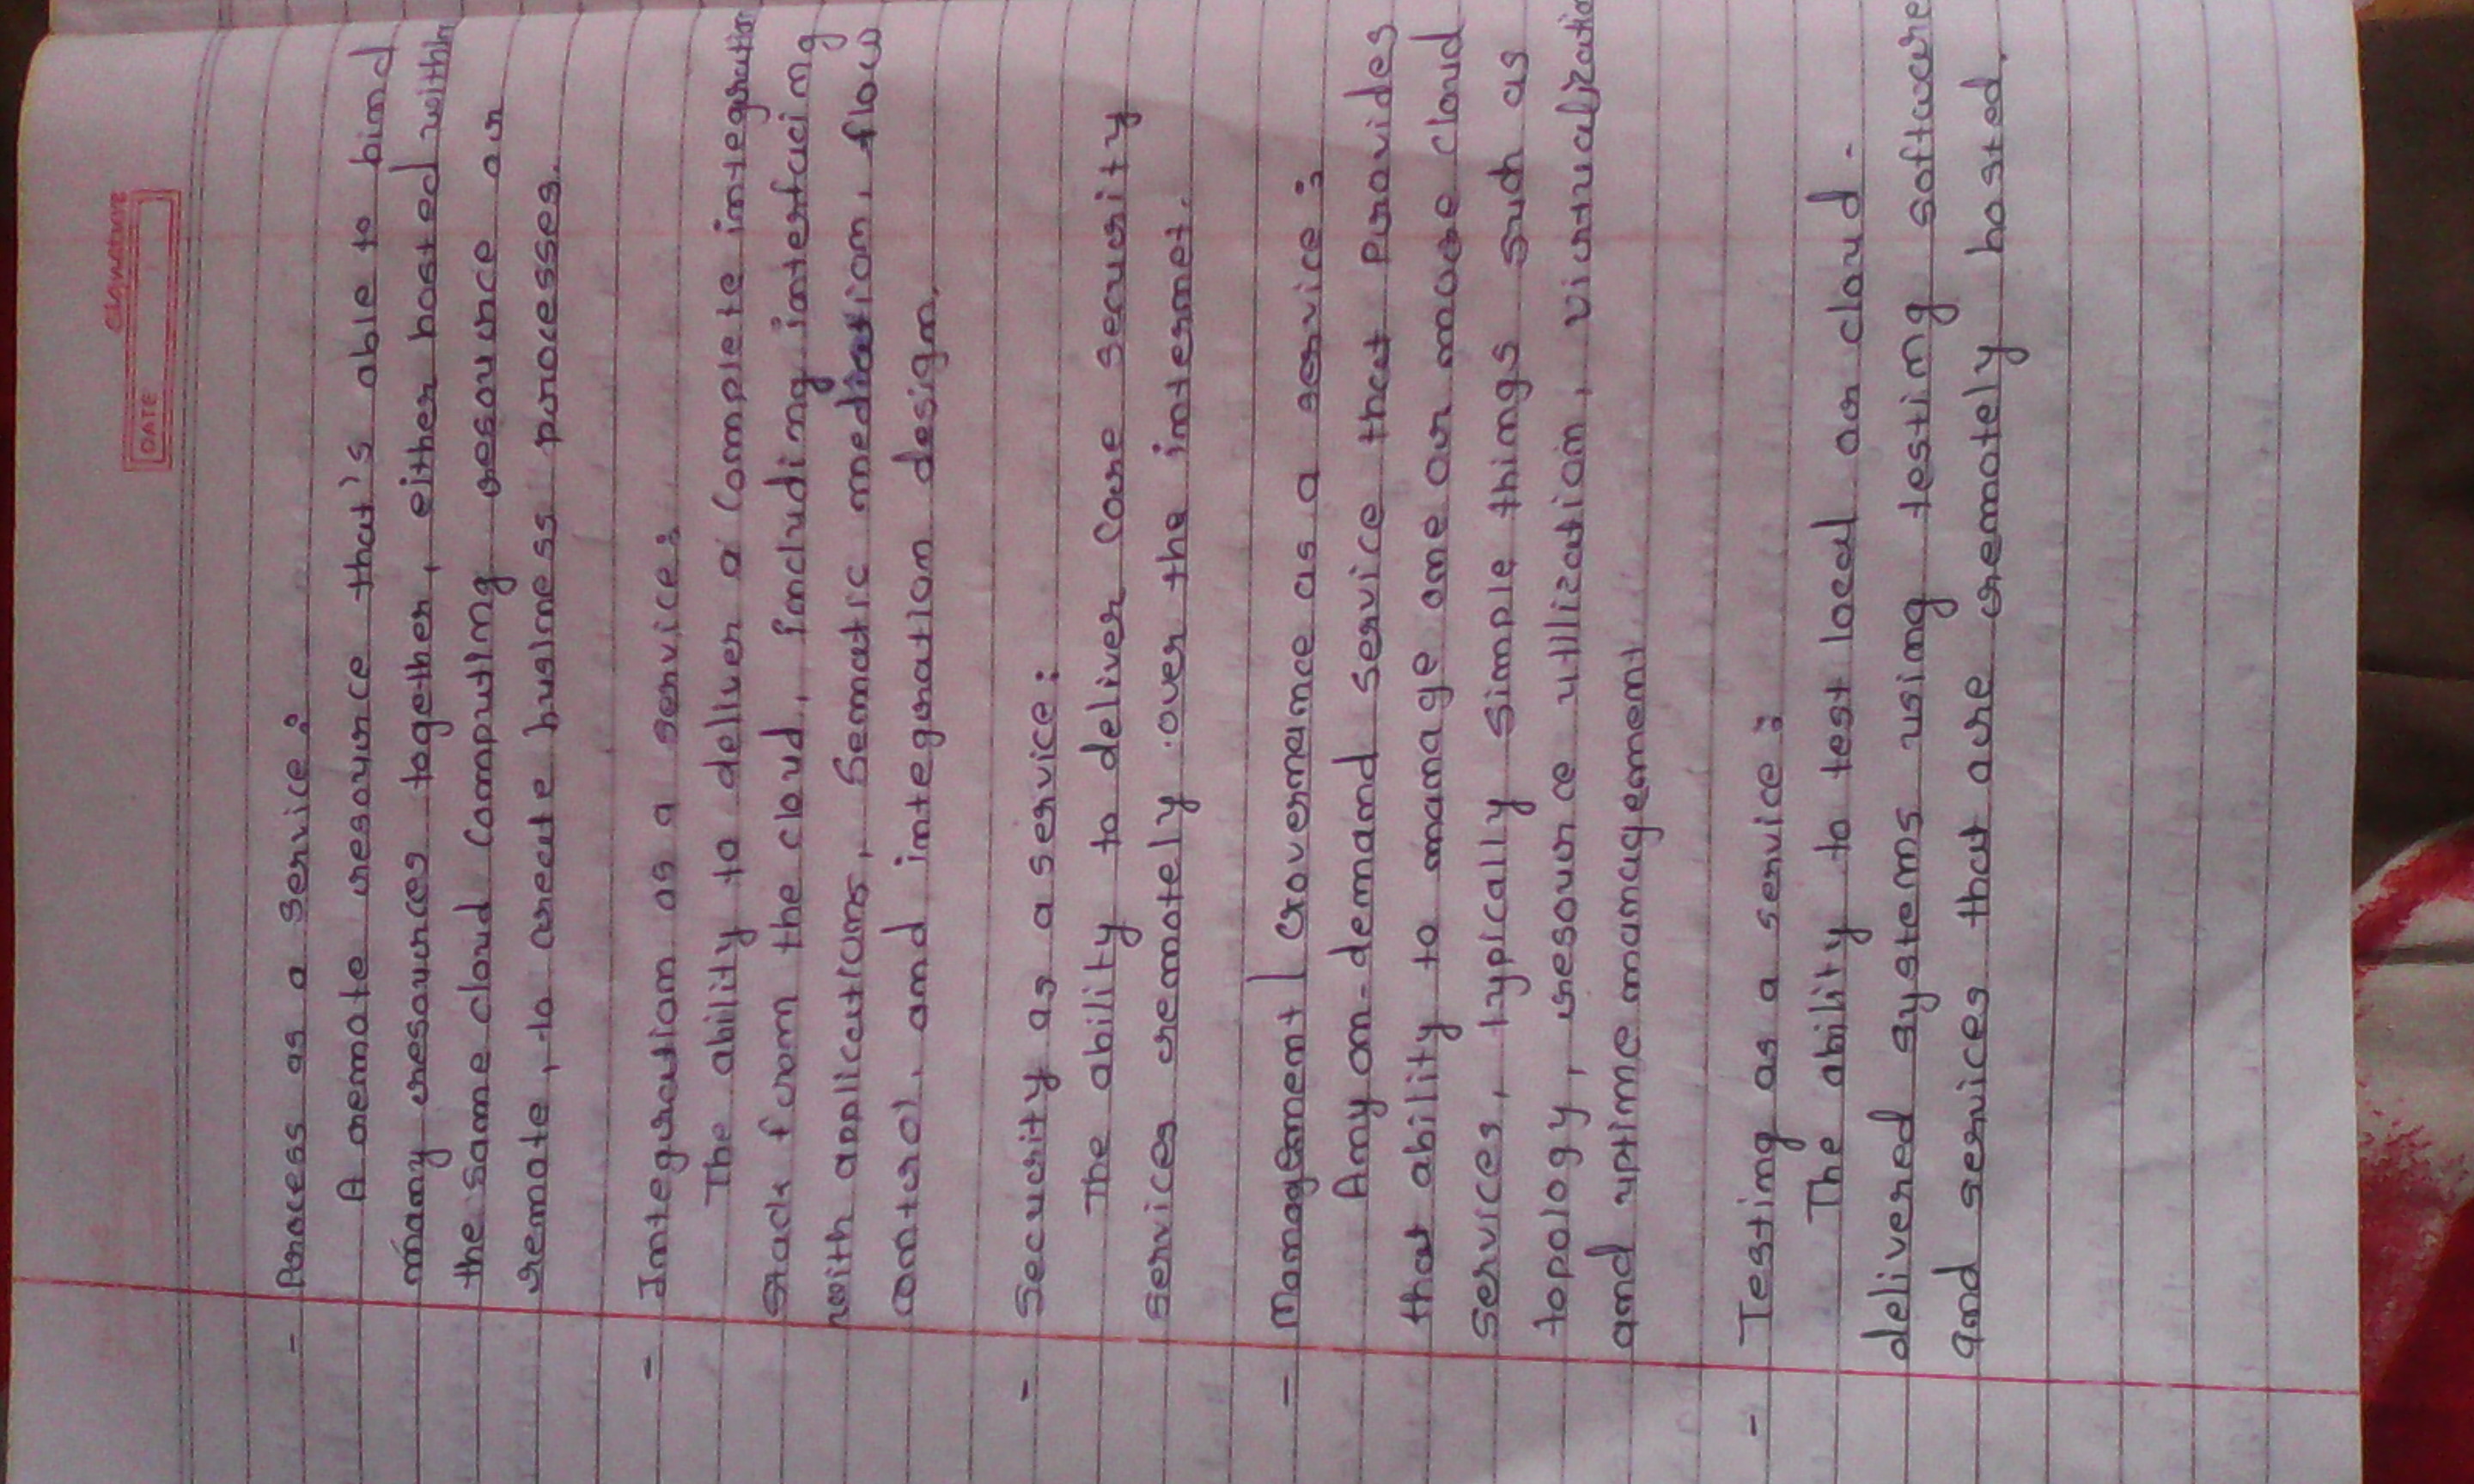 Signature
DATE
- Process as a Service:
A remote resource that's able to bind
many resources together, either hosted within
the same cloud computing resource or
remote, to create business processes.
- Integration as a service:
The ability to deliver a complete integration
stack from the cloud, including interfacing
with applications, Sematic mediation, flow
control, and integration design.
- Security as a service:
The ability to deliver core security
services remotely over the internet.
- Management | Governance as a service:
Any on-demand service that provides
that ability to manage one or more cloud
services, typically simple things such as
topology, resource utilization, virtualizatio
and uptime management
- Testing as a service:
The ability to test local or cloud-
delivered systems using testing software
and services that are remotely hosted.